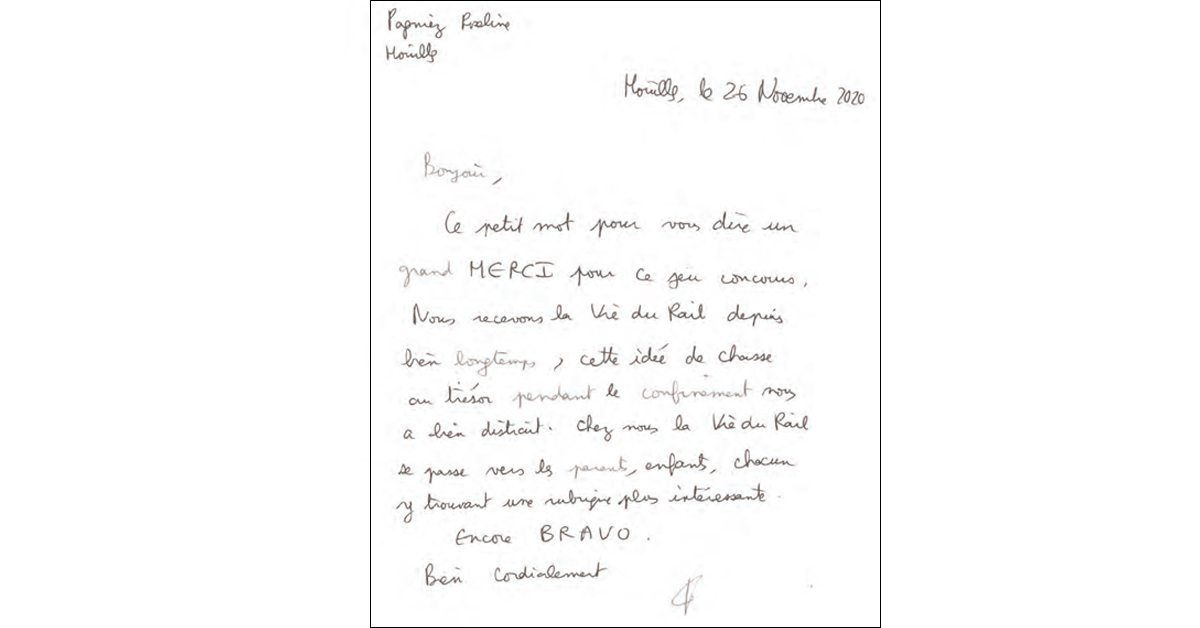 Papniez Roseline
Houlle
Houlle, le 26 Novembre 2020
Bonjour,
Ce petit mot pour vous dire un
grand MERCI pour ce jeu concours.
Nous recevons la Vie du Rail depuis
bien longtemps, cette idée de chasse
au trésor pendant le confinement nous
a bien distrait. Chez nous la Vie du Rail
se passe vers les parents, enfants, chacun
y trouvant une rubrique plus intéressante.
Encore BRAVO.
Bien Cordialement